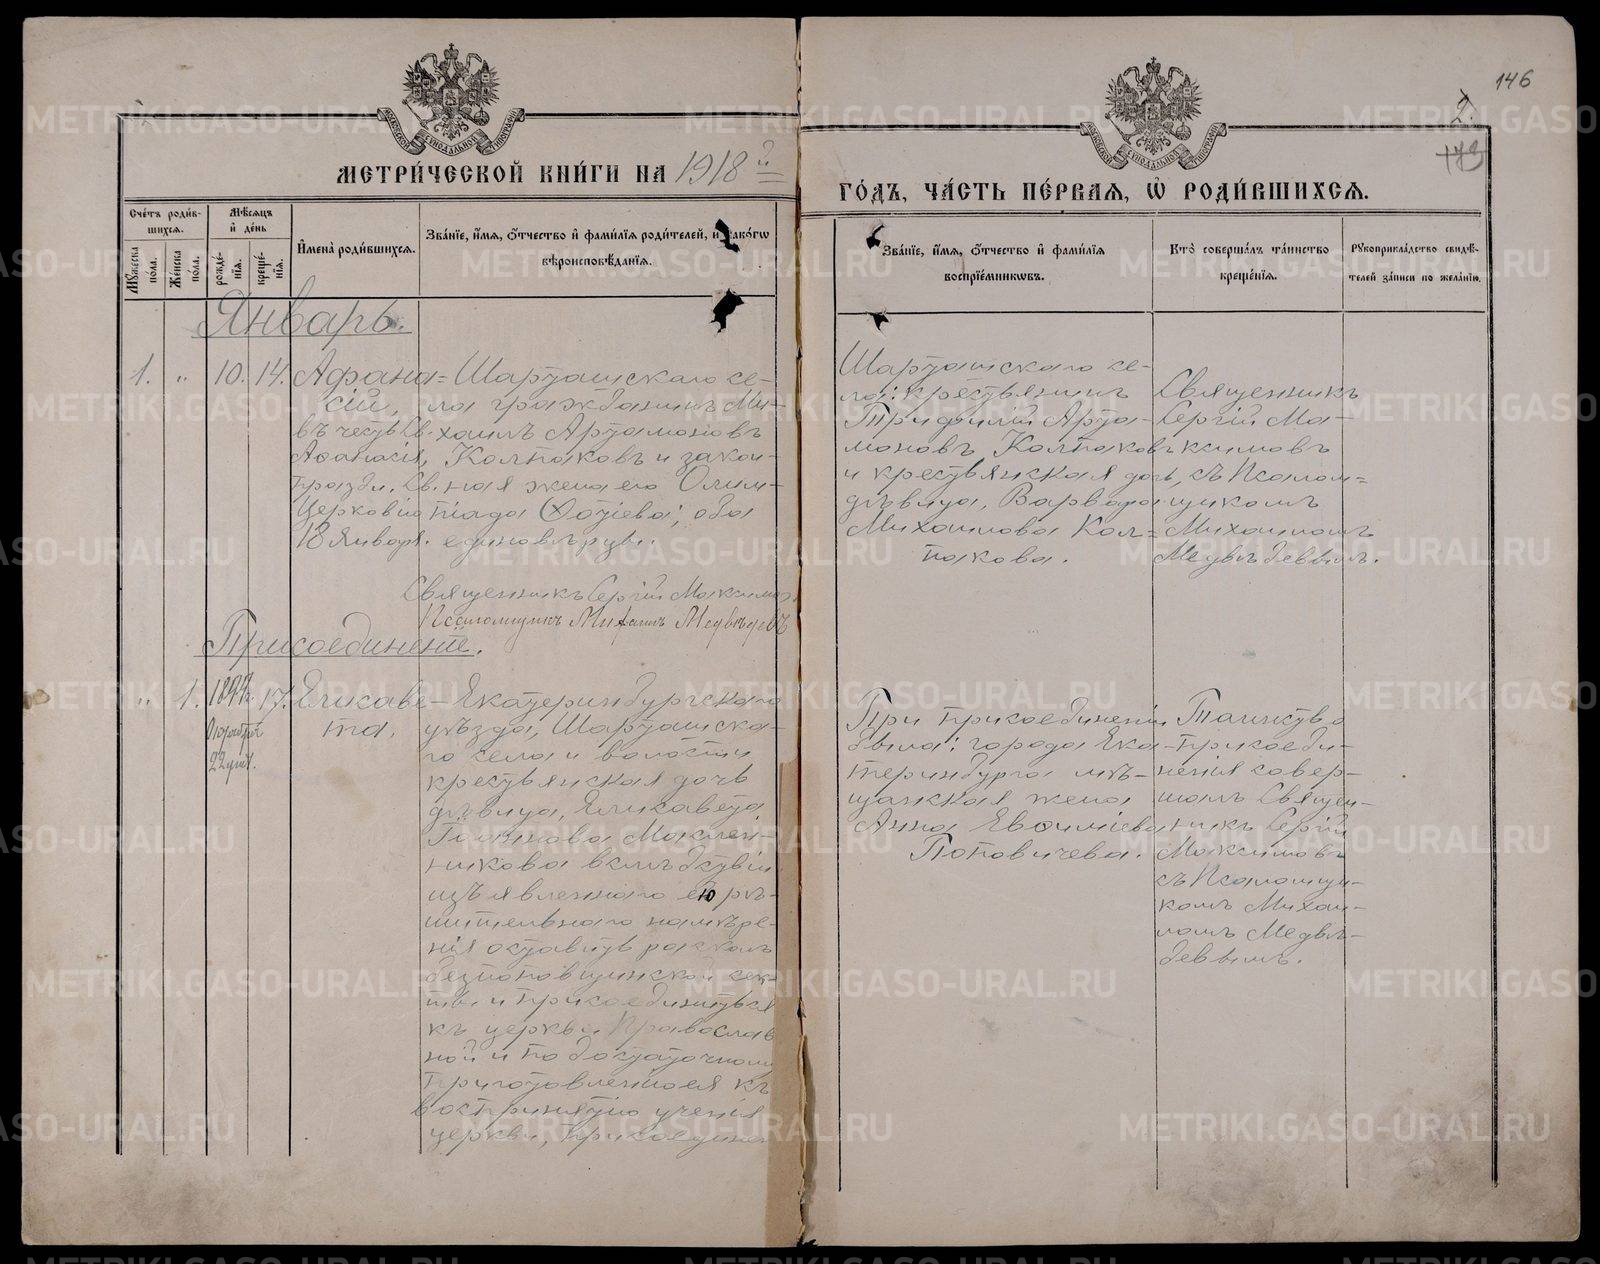 146
2.
173
МЕТРИ́ЧЕСКОЙ КНИ́ГИ НА 1918 й
ГО́ДЪ, ЧА́СТЬ ПЕ́РВАЯ, Ѡ҆ РОДИ́ВШИХСЯ.
Сче́тъ роди́в-
шихся.
Мѣ́сяцъ
и҆ де́нь
Мꙋ́жеска по́ла.
Же́нска по́ла.
рожде́-
нїя.
креще́-
нїя.
И҆мена̀ роди́вшихся.
Зва́нїе, и҆́мя, ѻ҆́тчество и҆ фами́лїя роди́телей, и҆ како́гѡ
вѣроисповѣ́данїя.
Зва́нїе, и҆́мя, ѻ҆́тчество и҆ фами́лїя
воспрїе́мниковъ.
Кто̀ соверша́лъ та́инство
креще́нїя.
Рꙋкоприкла́дство свидѣ́-
телей за́писи по жела́нїю.
Январь.
1. " 10. 14.
Афана=
сій,
въ честь Св.
Афанасія,
праздн. Св.
Церковію
18 Января.
Шарташскаго се-
ла гражданинъ Ми-
хаилъ Артамоновъ
Колпаковъ и закон-
ная жена его Олим-
піада Фотіева; оба
единовѣрцы.
Священникъ Сергій Максимовъ
Псаломщикъ Михаилъ Медвѣдевъ
Шарташскаго се-
ла: крестьянинъ
Трифилій Арта-
моновъ Колпаковъ
и крестьянская дочь,
дѣвица, Варвара
Михаилова Кол=
пакова.
Священникъ
Сергій Ма-
ксимовъ
съ Псалом=
щикомъ
Михаиломъ
Медвѣдевымъ.
Присоединеніе.
" 1. 1897 г. 17.
Октября
22 дня.
Елисаве-
та,
Екатеринбургскаго
уѣзда, Шарташска-
го села и волости
крестьянская дочь
дѣвица, Елисавета
Іоаннова Маслен-
никова вслѣдствіи
изъявленнаго ею рѣ-
шительнаго намѣре-
нія оставить расколъ
безпоповщинской сек-
ты и присоединиться
къ церкви Православ
ной и по достаточному
приготовленіи ея къ
воспринятію ученія
церкви, присоединен
При присоединеніи
была: города Ека-
теринбурга мѣ-
щанская жена
Анна Евфиміева
Поповичева.
Таинство
присоеди-
ненія совер-
шалъ Священ-
никъ Сергій
Максимовъ
съ Псаломщи-
комъ Михаи-
ломъ Медвѣ-
девымъ.
METRIKI.GASO-URAL.RU